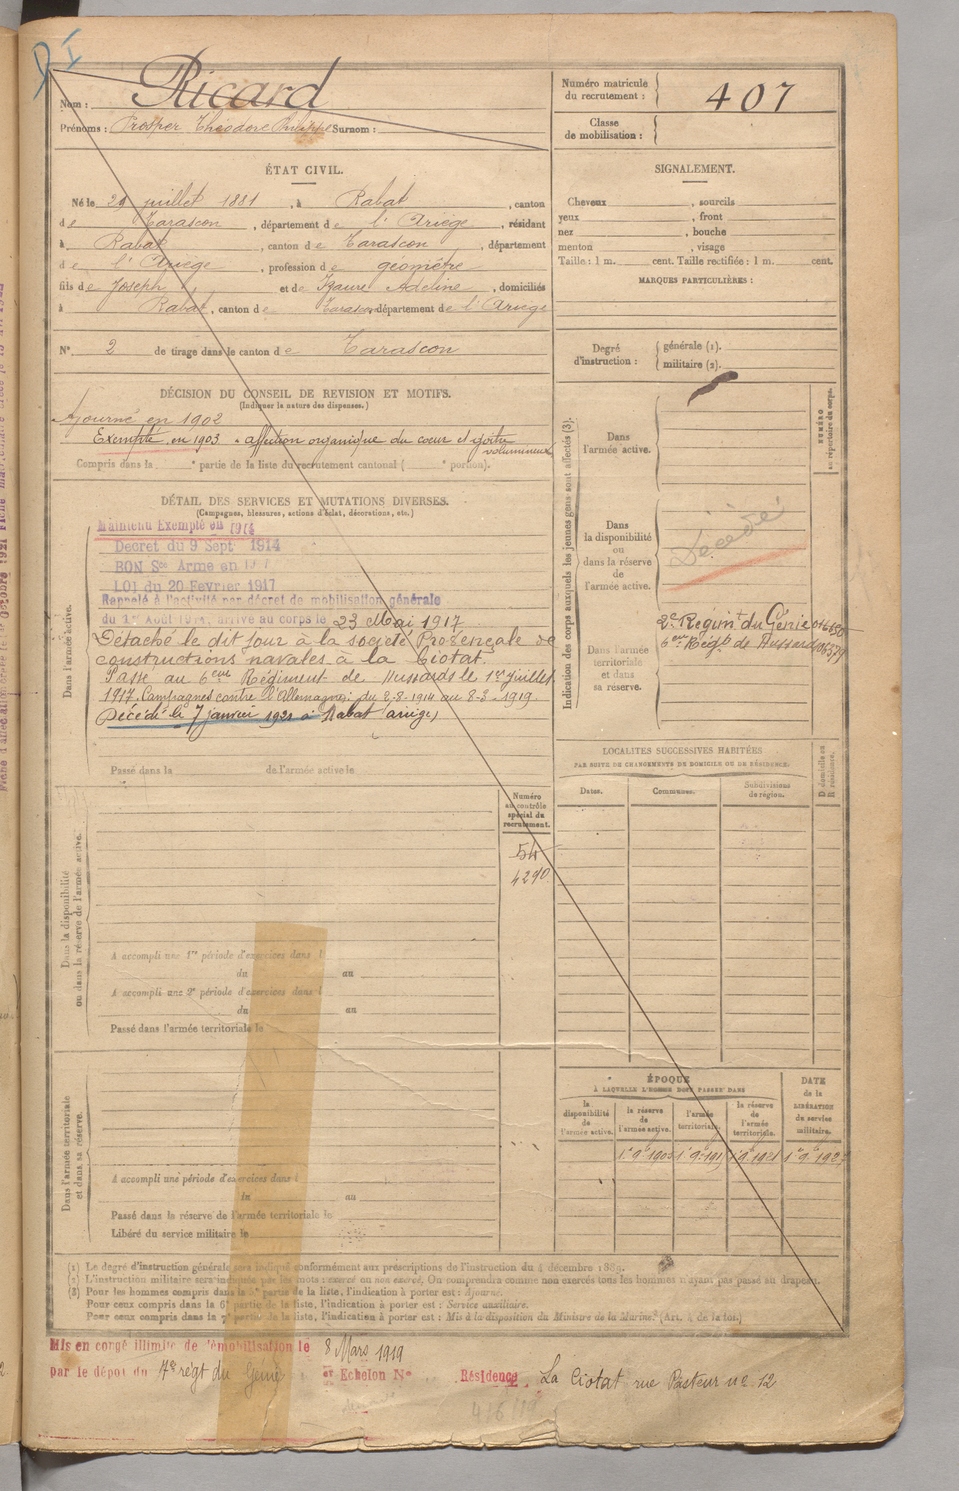 Nom : Ricard
Prénoms : Prosper Théodore Philippe Surnom :
Numéro matricule du recrutement : 407
Classe de mobilisation :
ÉTAT CIVIL.
Né le 29 juillet 1881, à Rabat, canton
de Tarascon, département de l'Ariège, résidant
à Rabat, canton de Tarascon, département
de l'Ariège, profession de géomètre
fils de Joseph, et de Izaure Adeline, domiciliés
à Rabat, canton de Tarascon département de l'Ariège
N° 2 de tirage dans le canton de Tarascon
SIGNALEMENT.
Cheveux , sourcils
yeux , front
nez , bouche
menton , visage
Taille : 1 m. cent. Taille rectifiée : 1 m. cent.
MARQUES PARTICULIÈRES :
Degré d'instruction : générale (1).
militaire (2).
DÉCISION DU CONSEIL DE REVISION ET MOTIFS.
(Indiquer la nature des dispenses.)
Ajourné en 1902
Exempté en 1903 affection organique du coeur et goitre
volumineux
Compris dans la e partie de la liste du recrutement cantonal ( e portion).
DÉTAIL DES SERVICES ET MUTATIONS DIVERSES.
(Campagnes, blessures, actions d'éclat, décorations, etc.)
Dans l'armée active.
Maintenu Exempté en 1914
Decret du 9 Sept 1914
BON Sce Armé en 1917
LOI du 20 Fevrier 1917
Rappelé à l'activité par décret de mobilisation générale
du 1er Août 1914, arrivé au corps le 23 Mai 1917
Détaché le dit jour à la société Provençale de
constructions navales à la Ciotat.
Passé au 6eme Régiment de Hussards le 1er juillet
1917. Campagnes contre l'Allemagne: du 2-8-1914 au 8-3-1919.
Décédé le 7 janvier 1921 à Rabat (ariège)
Passé dans la de l'armée active le
Indication des corps auxquels les jeunes gens sont affectés (3).
NUMÉRO au répertoire du corps.
Dans l'armée active.
Dans la disponibilité ou dans la réserve de l'armée active.
Décédé
Dans l'armée territoriale et dans sa réserve.
2e Régimt du Génie
6eme Régt de Hussards
LOCALITES SUCCESSIVES HABITÉES
PAR SUITE DE CHANGEMENTS DE DOMICILE OU DE RÉSIDENCE.
Dates. Communes. Subdivisions de région.
D domicile ou R résidence.
Numéro au contrôle spécial du recrutement.
54
4290
Dans la disponibilité ou dans la réserve de l'armée active.
A accompli une 1re période d'exercices dans l
du au
A accompli une 2e période d'exercices dans l
du au
Passé dans l'armée territoriale le
Dans l'armée territoriale et dans sa réserve.
A accompli une période d'exercices dans l
du au
Passé dans la réserve de l'armée territoriale le
Libéré du service militaire le
ÉPOQUE
À LAQUELLE L'HOMME DOIT PASSER DANS
la disponibilité de l'armée active.
la réserve de l'armée active.
l'armée territoriale.
la réserve de l'armée territoriale.
DATE de la LIBÉRATION du service militaire.
(1) Le degré d'instruction générale sera indiqué conformément aux prescriptions de l'instruction du 4 décembre 1889.
(2) L'instruction militaire sera indiquée par les mots : exercé ou non exercé. On comprendra comme non exercés tous les hommes n'ayant pas passé au drapeau.
(3) Pour les hommes compris dans la partie de la liste, l'indication à porter est : Ajourné.
Pour ceux compris dans la 6e partie de la liste, l'indication à porter est : Service auxiliaire.
Pour ceux compris dans la 7e partie de la liste, l'indication à porter est : Mis à la disposition du Ministre de la Marine. (Art. 4 de la loi.)
Mis en congé illimité de démobilisation le 8 Mars 1919
par le dépot du 7e régt du Génie Echelon N° Résidence La Ciotat rue Pasteur n° 12